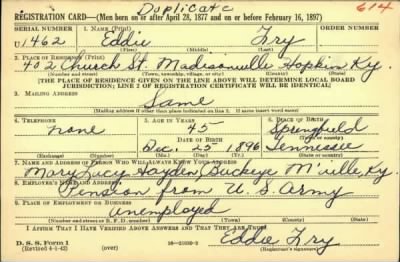 Duplicate
614
REGISTRATION CARD—(Men born on or after April 28, 1877 and on or before February 16, 1897)
SERIAL NUMBER 1. NAME (Print) ORDER NUMBER
U 1462 Eddie Fry
(First) (Middle) (Last)
2. PLACE OF RESIDENCE (Print)
402 Church St. Madisonville Hopkin, Ky.
(Number and street) (Town, township, village, or city) (County) (State)
[THE PLACE OF RESIDENCE GIVEN ON THE LINE ABOVE WILL DETERMINE LOCAL BOARD
JURISDICTION; LINE 2 OF REGISTRATION CERTIFICATE WILL BE IDENTICAL]
3. MAILING ADDRESS
Same
(Mailing address if other than place indicated on line 2. If same insert word same)
4. TELEPHONE 5. AGE IN YEARS 6. PLACE OF BIRTH
none 45 Springfield
DATE OF BIRTH (Town or county)
Dec. 25 1896 Tennessee
(Exchange) (Number) (Mo.) (Day) (Yr.) (State or country)
7. NAME AND ADDRESS OF PERSON WHO WILL ALWAYS KNOW YOUR ADDRESS
Mary Lucy Hayden, Buckeye M'ville, Ky.
8. EMPLOYER'S NAME AND ADDRESS
Pension from U. S. Army
9. PLACE OF EMPLOYMENT OR BUSINESS
Unemployed
(Number and street or R. F. D. number) (Town) (County) (State)
I AFFIRM THAT I HAVE VERIFIED ABOVE ANSWERS AND THAT THEY ARE TRUE.
D. S. S. Form 1 Eddie Fry
(Revised 4-1-42) (over) 16-21630-2 (Registrant's signature)